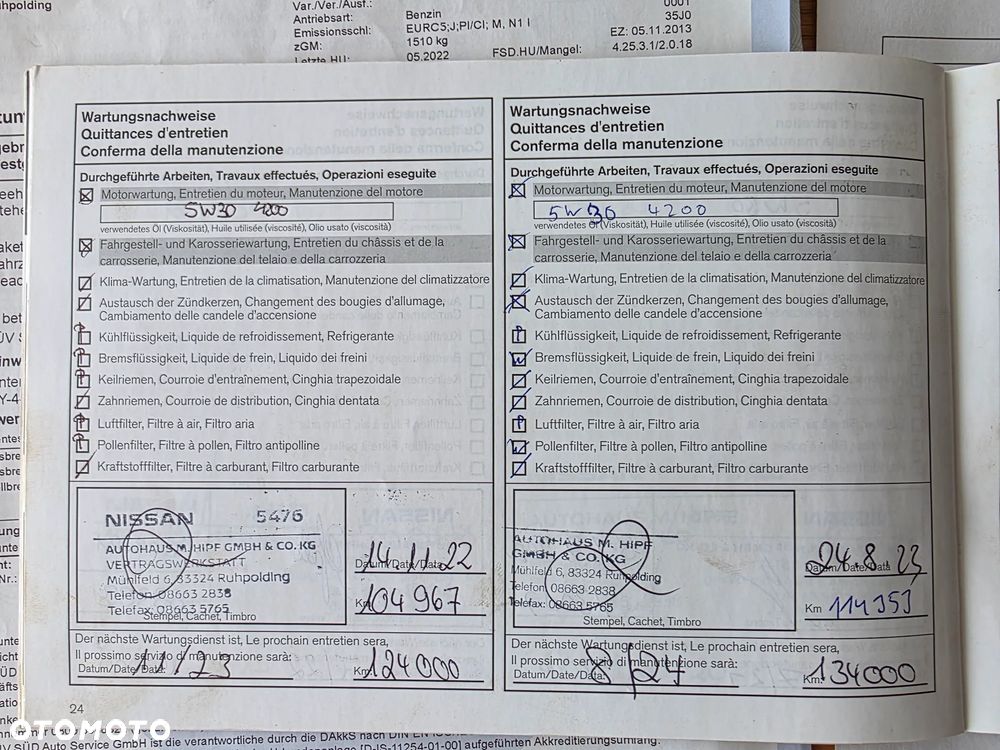 hpolding
Var./Ver./Ausf.:
0001
Antriebsart: Benzin 35J0
Emissionsschl: EURC5;J;PI/CI; M, N1 I
zGM: 1510 kg EZ: 05.11.2013
Letzte HU: 05.2022 FSD.HU/Mangel: 4.25.3.1/2.0.18
Wartungsnachweise
Quittances d'entretien
Conferma della manutenzione
Durchgeführte Arbeiten, Travaux effectués, Operazioni eseguite
Motorwartung, Entretien du moteur, Manutenzione del motore
5W30 4200
verwendetes Öl (Viskosität), Huile utilisée (viscosité), Olio usato (viscosità)
Fahrgestell- und Karosseriewartung, Entretien du châssis et de la
carrosserie, Manutenzione del telaio e della carrozzeria
Klima-Wartung, Entretien de la climatisation, Manutenzione del climatizzatore
Austausch der Zündkerzen, Changement des bougies d'allumage,
Cambiamento delle candele d'accensione
Kühlflüssigkeit, Liquide de refroidissement, Refrigerante
Bremsflüssigkeit, Liquide de frein, Liquido dei freini
Keilriemen, Courroie d'entraînement, Cinghia trapezoidale
Zahnriemen, Courroie de distribution, Cinghia dentata
Luftfilter, Filtre à air, Filtro aria
Pollenfilter, Filtre à pollen, Filtro antipolline
Kraftstofffilter, Filtre à carburant, Filtro carburante
NISSAN 5476
AUTOHAUS M. HIPF GMBH & CO. KG
VERTRAGSWERKSTATT
Mühlfeld 6, 83324 Ruhpolding
Telefon 08663 2838
Telefax: 08663 5765
Stempel, Cachet, Timbro
14.11.22
Datum/Date/Data
Km 104 967
Der nächste Wartungsdienst ist, Le prochain entretien sera,
Il prossimo servizio di manutenzione sarà:
Datum/Date/Data: 11/23 Km: 124000
24
Wartungsnachweise
Quittances d'entretien
Conferma della manutenzione
Durchgeführte Arbeiten, Travaux effectués, Operazioni eseguite
Motorwartung, Entretien du moteur, Manutenzione del motore
5W30 4200
verwendetes Öl (Viskosität), Huile utilisée (viscosité), Olio usato (viscosità)
Fahrgestell- und Karosseriewartung, Entretien du châssis et de la
carrosserie, Manutenzione del telaio e della carrozzeria
Klima-Wartung, Entretien de la climatisation, Manutenzione del climatizzatore
Austausch der Zündkerzen, Changement des bougies d'allumage,
Cambiamento delle candele d'accensione
Kühlflüssigkeit, Liquide de refroidissement, Refrigerante
Bremsflüssigkeit, Liquide de frein, Liquido dei freini
Keilriemen, Courroie d'entraînement, Cinghia trapezoidale
Zahnriemen, Courroie de distribution, Cinghia dentata
Luftfilter, Filtre à air, Filtro aria
Pollenfilter, Filtre à pollen, Filtro antipolline
Kraftstofffilter, Filtre à carburant, Filtro carburante
AUTOHAUS M. HIPF
GMBH & CO. KG
Mühlfeld 6, 83324 Ruhpolding
Telefon 08663 2838
Telefax: 08663 5765
Stempel, Cachet, Timbro
04.8.23
Datum/Date/Data
Km 114353
Der nächste Wartungsdienst ist, Le prochain entretien sera,
Il prossimo servizio di manutenzione sarà:
Datum/Date/Data: Km: 134000
OTOMOTO
V SÜD Auto Service GmbH ist die verantwortliche durch die DAkkS nach DIN EN
[D-IS-11254-01-00] aufgeführten Akkreditierungsumfang.